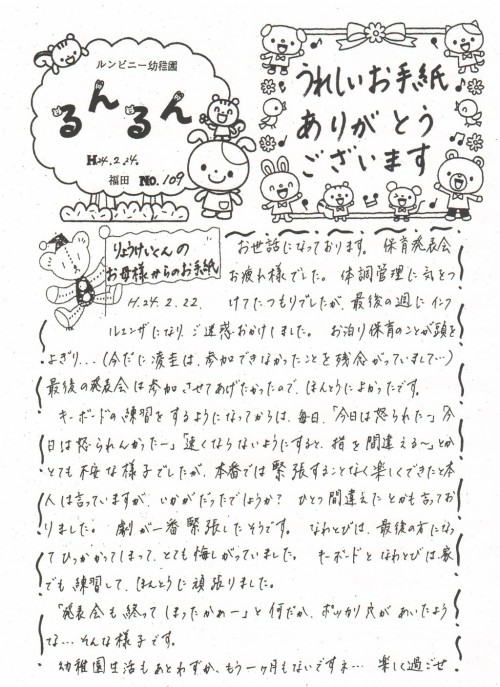 ルンビニー幼稚園
るんるん
H24.2.24.
福田 No.109
うれしいお手紙
ありがとう
ございます
りょうけいとんの
お母様からのお手紙
H.24.2.22.
お世話になっております。 保育発表会
お疲れ様でした。 体調管理に気をつ
けてたつもりでしたが、最後の週にインフ
ルエンザになり、ご迷惑おかけしました。 お泊り保育のことが頭を
よぎり...(今だに凌圭は、参加できなかったことを残念がっていまして…)
最後の発表会は参加させてあげたかったので、ほんとうによかったです。
キーボードの練習をするようになってからは、毎日、「今日は怒られたー」「今
日は怒られんかったー」「速くならないようにすると、指を間違える〜」とか
とても不安な様子でしたが、本番では緊張することなく楽しくできたと本
人は言っていますが、いかがだったでしょうか? ひとつ間違えたとかも言ってお
りました。 劇が一番緊張したそうです。 なわとびは、最後の方になっ
てひっかかってしまって、とても悔しがっていました。 キーボードとなわとびは、家
でも練習して、ほんとうに頑張りました。
「発表会も終ってしまったかぁー」と何だか、ポッカリ穴があいたよう
な…そんな様子です。
幼稚園生活もあとわずか、もう一ヶ月もないですネ… 楽しく過ごせ